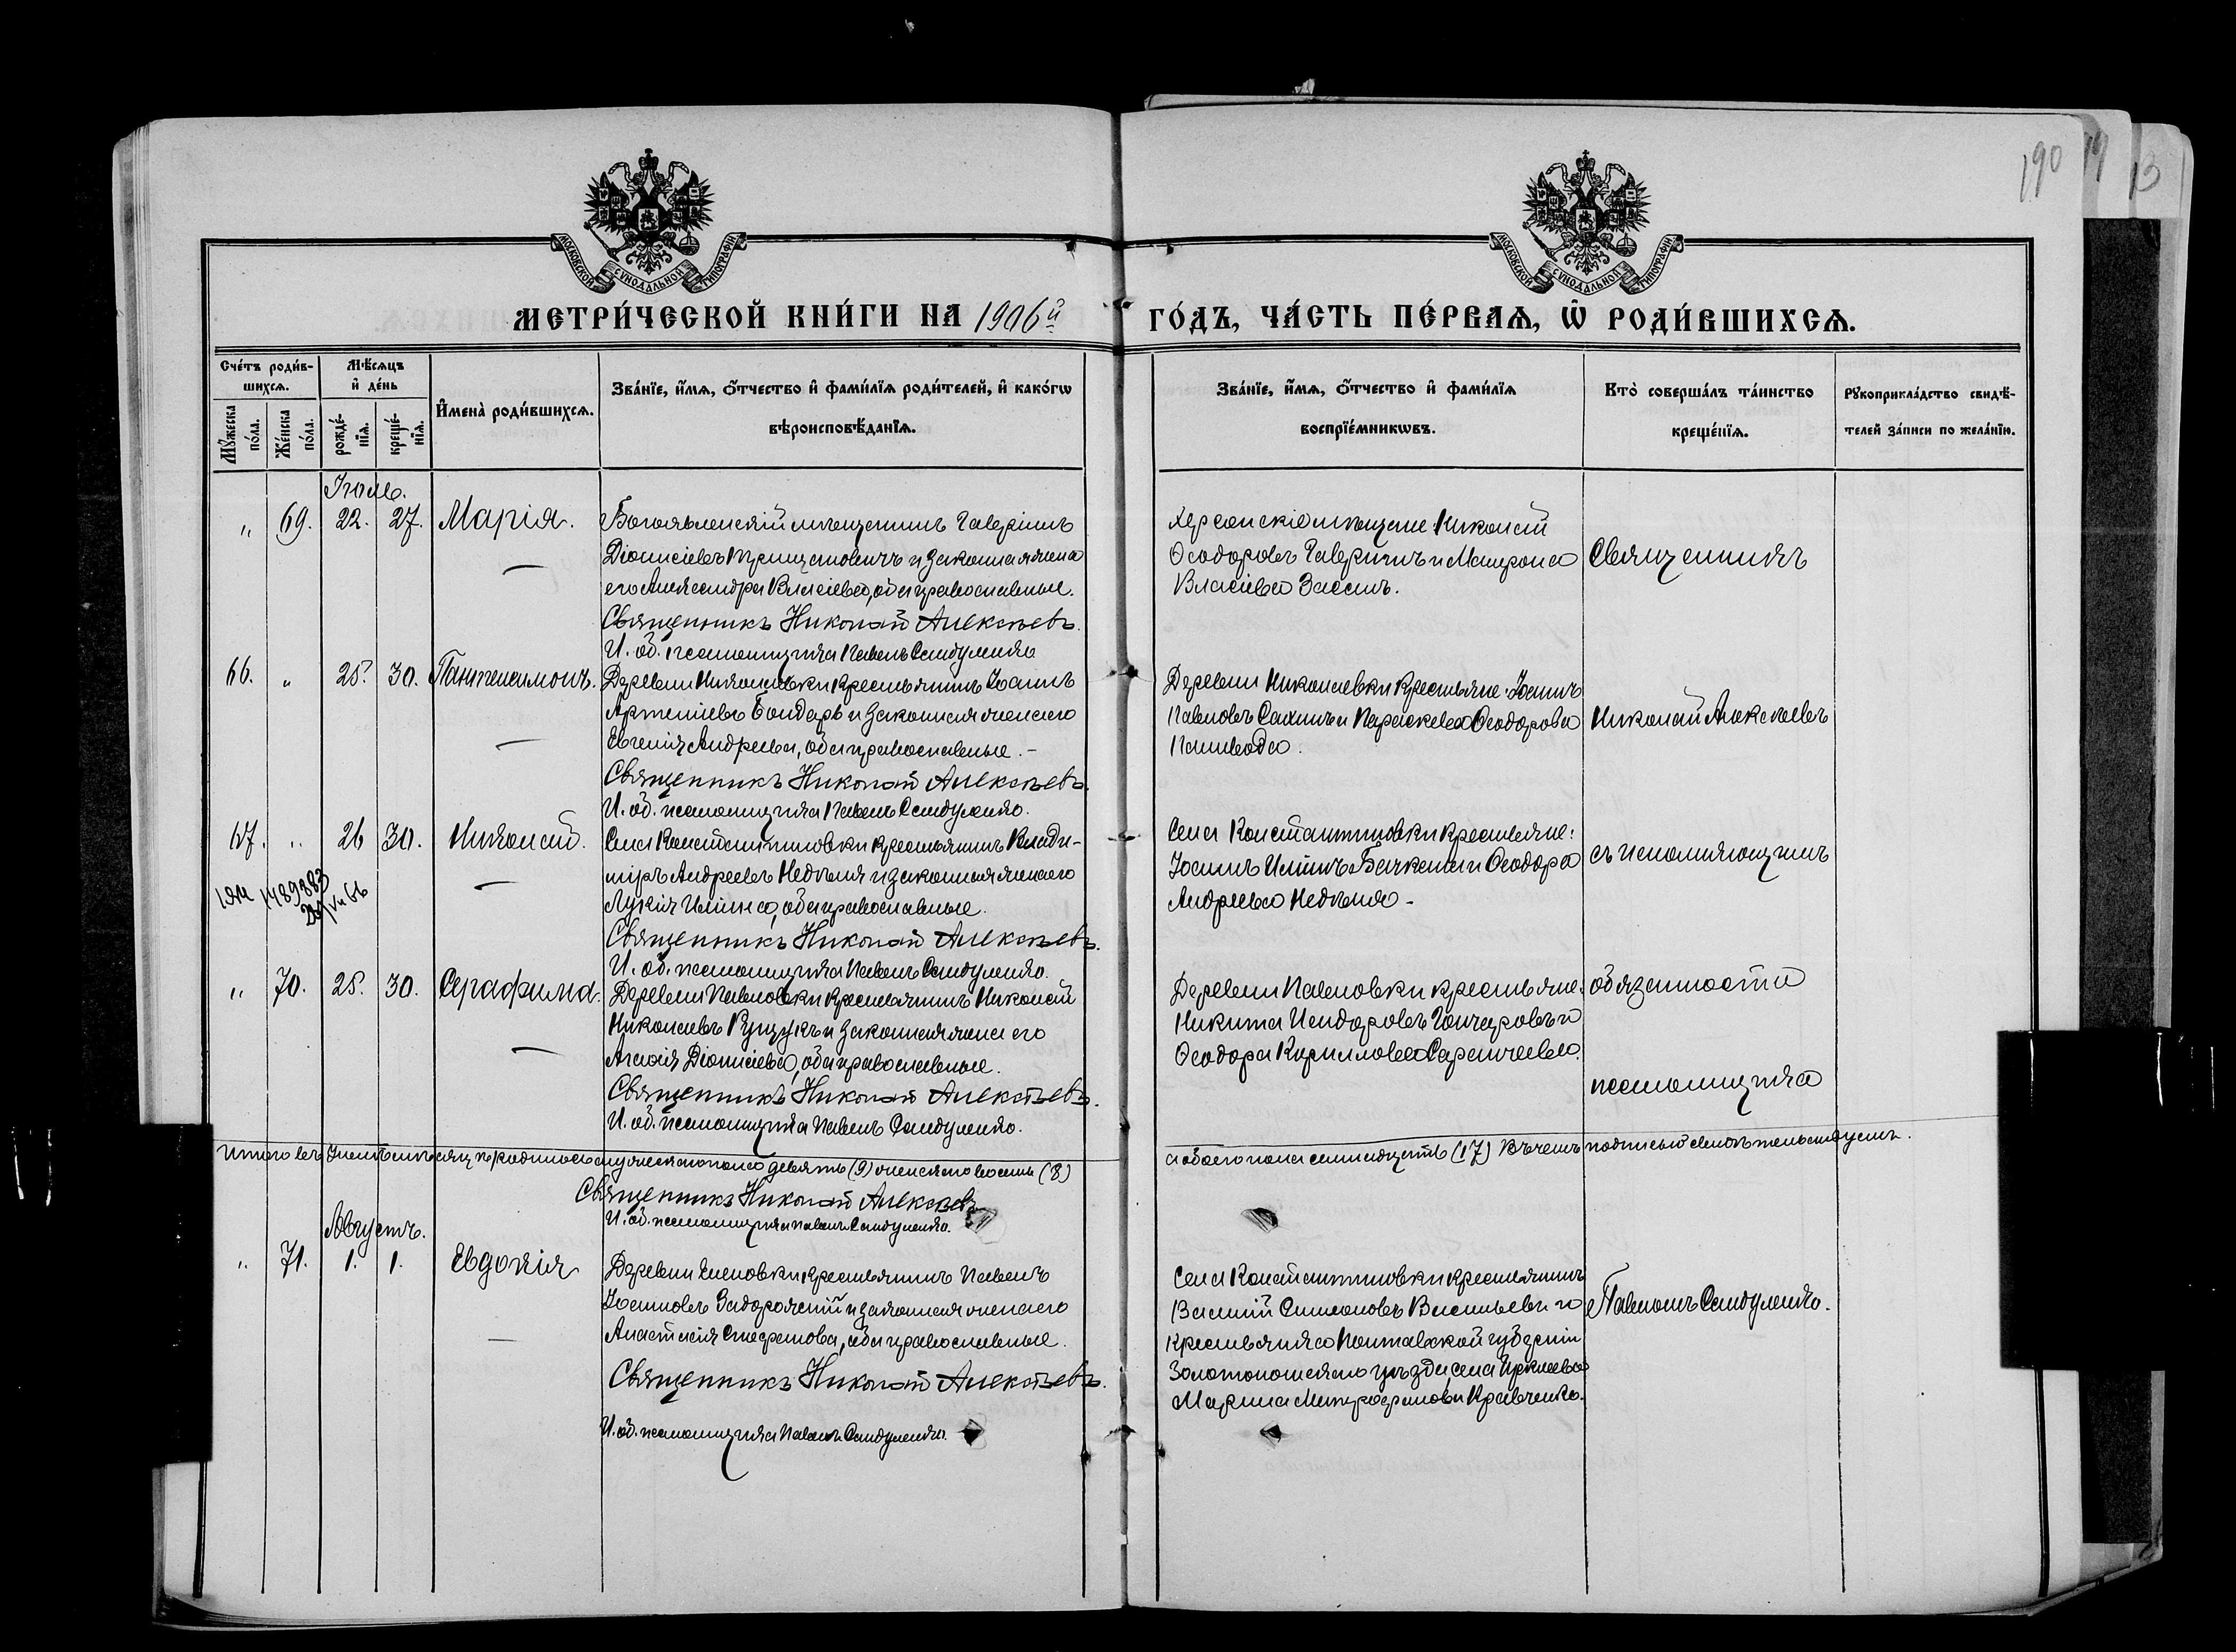 190
МОСКОВСКОЙ СѴНОДАЛЬНОЙ ТИПОГРАФІИ
МОСКОВСКОЙ СѴНОДАЛЬНОЙ ТИПОГРАФІИ
МЕТРИ́ЧЕСКОЙ КНИ́ГИ НА 1906й ГО́ДЪ, ЧА́СТЬ ПЕ́РВАѦ, Ѡ҆ РОДИ́ВШИХСѦ.
Сче́тъ роди́в-
шихсѧ.
Мꙋ́жеска по́ла.
Же́нска по́ла.
Мѣ́сѧцъ
и҆ де́нь
рожде́-
нїѧ.
креще́-
нїѧ.
И҆мена̀ роди́вшихсѧ.
Зва́нїе, и҆́мѧ, ѻ҆́тчество и҆ фами́лїѧ роди́телей, и҆ како́гѡ
вѣроисповѣ́данїѧ.
Зва́нїе, и҆́мѧ, ѻ҆́тчество и҆ фами́лїѧ
воспрїе́мникѡвъ.
Кто̀ соверша́лъ та́инство
креще́нїѧ.
Рꙋкоприкла́дство свидѣ́-
телей за́писи по жела́нїю.
Іюль.
„ 69. 22. 27. Марія.
Богоявленскій мѣщанинъ Гавріилъ
Діонисіевъ и законная жена
его Александра Власіева, оба православные.
Священникъ Николай Алексѣевъ.
И. об. псаломщика Павелъ Сандуленко
Херсонскіе мѣщане: Николай
Ѳеодоровъ и Матрона
Власіева
Священникъ
66. „ 25. 30. Пантелеимонъ.
Деревни Николаевки крестьянинъ Іоаннъ
Артеміевъ Бондарь и законная жена его
Евгенія Андреева, оба православные.-
Священникъ Николай Алексѣевъ.
И. об. псаломщика Павелъ Сандуленко.
Деревни Николаевки крестьяне: Іоаннъ
Павловъ и Параскева Ѳеодорова
Николай Алексѣевъ
67. „ 26 30. Николай.
Села Константиновки крестьянинъ Влади-
міръ Андреевъ Недѣля и законная жена его
Лукія Иліина, оба православные.
Священникъ Николай Алексѣевъ.
И. об. псаломщика Павелъ Сандуленко.
Села Константиновки крестьяне:
Іоаннъ Иліинъ и Ѳеодора
Андреева Недѣля-
съ исполняющимъ
„ 70. 25. 30. Серафима.
Деревни Павловки крестьянинъ Николай
Николаевъ Рущукъ и законная жена его
Агафія Діонисіева, оба православные.
Священникъ Николай Алексѣевъ.
И. об. псаломщика Павелъ Сандуленко.
Деревни Павловки крестьяне:
Никита Исидоровъ Гончаровъ и
Ѳеодора Кириллова
обязанности
псаломщика
Итого въ Іюлѣ мѣсяцѣ родилось мужеского пола девять (9) женского восемь (8)
а обоего пола семнадцать (17) Въ чемъ подписью свидѣтельствуемъ.
Священникъ Николай Алексѣевъ
И. об. псаломщика Павелъ Сандуленко.
Августъ.
„ 71. 1. 1. Евдокія
Деревни Еленовки крестьянинъ Павелъ
Іоанновъ Задорожній и законная жена его
Анастасія Стефанова, оба православные.
Священникъ Николай Алексѣевъ.
И. об. псаломщика Павелъ Сандуленко.
Села Константиновки крестьянинъ
Василій Симеоновъ Васильевъ и
крестьянка Полтавской губерніи
Золотоношскаго уѣзда, села Иркліева
Марина Митрофанова Кравченко.
Павломъ Сандуленко.